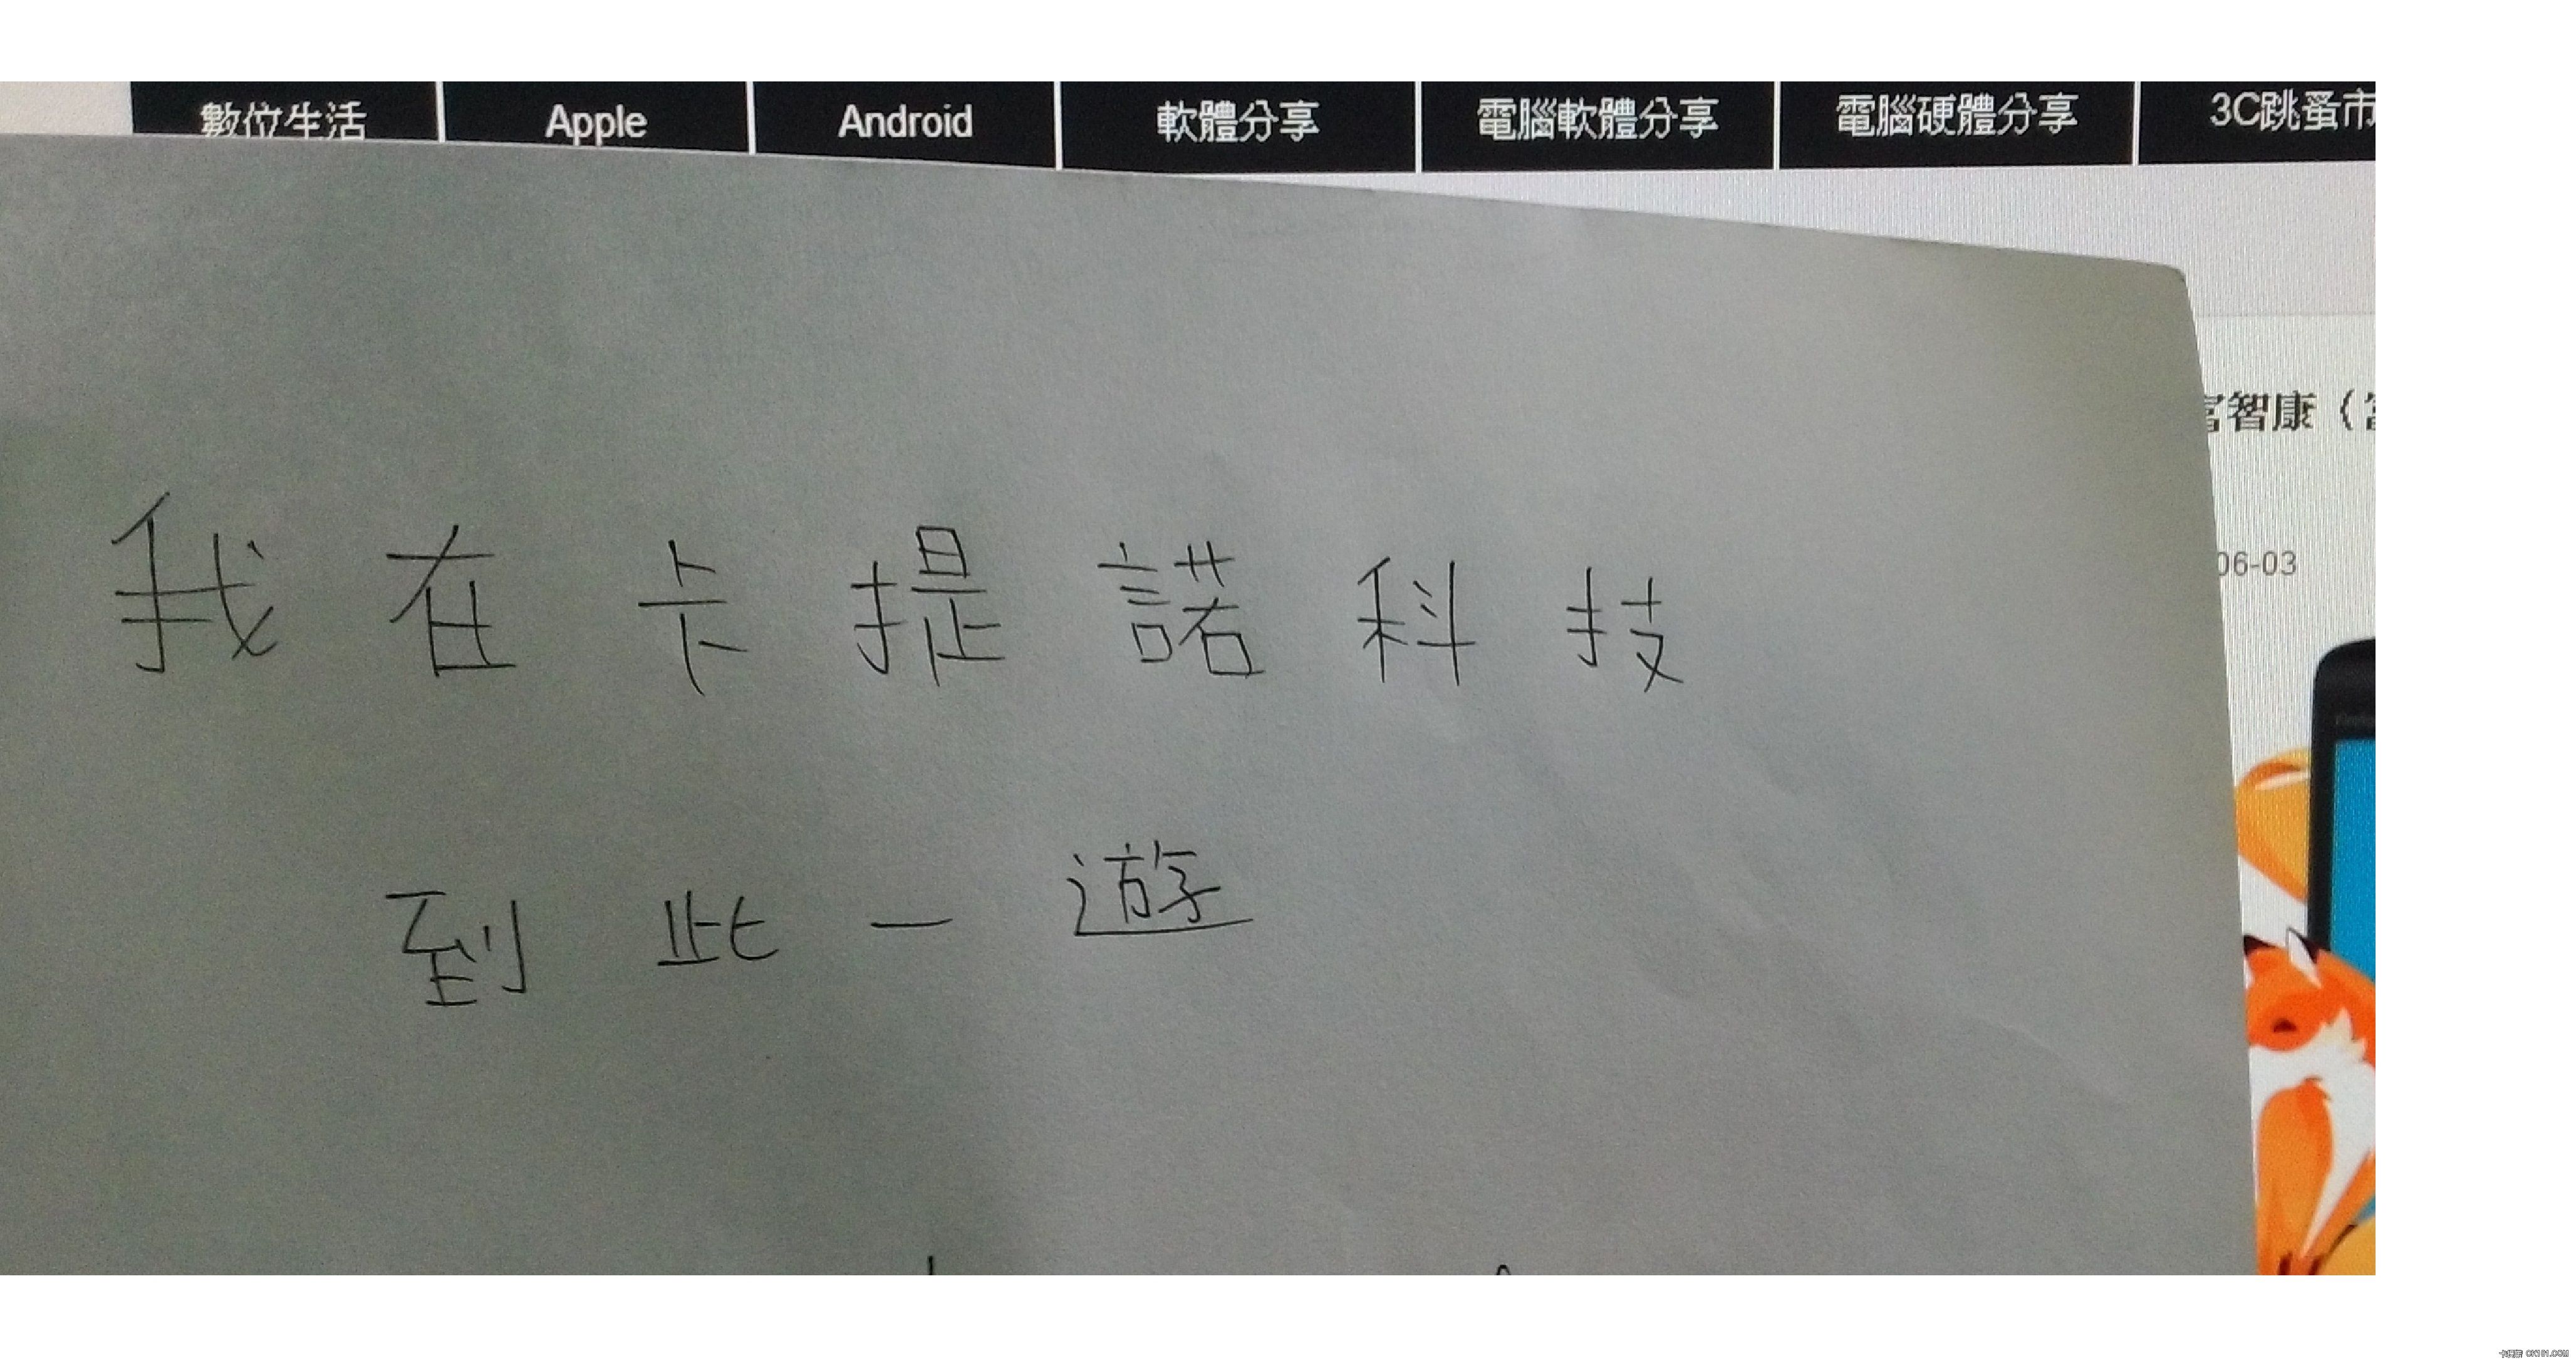 數位生活 Apple Android 軟體分享 電腦軟體分享 電腦硬體分享 3C跳蚤市
智康（
06-03
我在卡提諾科技
到此一遊